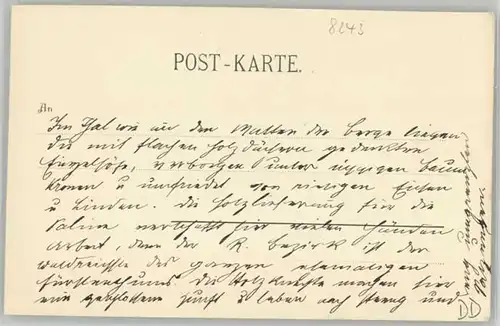 8243
POST-KARTE.
An
Im Thal wie an den Matten der Berge liegen
die mit flachen Holzdächern gedeckten
Einzelhöfe, verborgen unter üppigen Baum
kronen u umfriedet von riesigen Eichen
u Linden. Die Holzlieferung für die
Saline verschafft hier vielen Händen
Arbeit, denn der R. Bezirk ist der
waldreichste des ganzen ehemaligen
Fürstenthums. Die Holzknechte machen hier
eine geschlossene Zunft u leben noch streng und
DD